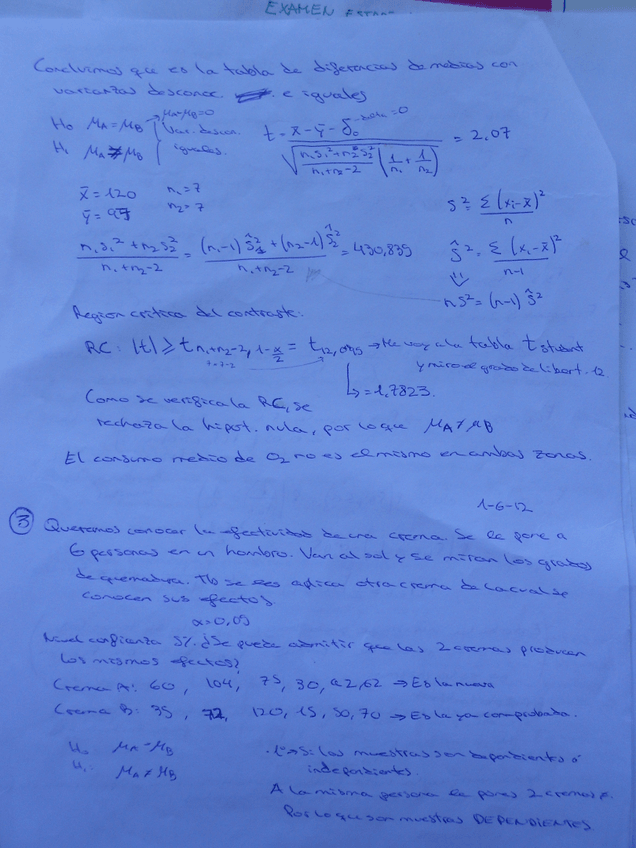 EXAMEN
Concluimos que es la tabla de diferencias de medias con
varianzas desconoc. e iguales
H₀ μA=μB μA-μB=0
H₁ μA≠μB Var. descon. iguales.
t = x̄ - ȳ - δ₀ / √( (n₁s₁²+n₂s₂²)/(n₁+n₂-2) (1/n₁ + 1/n₂) ) = 2,07
x̄=120 n₁=7
ȳ=97 n₂=7
s² = Σ(xᵢ-x̄)²/n
(n₁s₁²+n₂s₂²)/(n₁+n₂-2) = ((n₁-1)ŝ₁²+(n₂-1)ŝ₂²)/(n₁+n₂-2) = 430,835
ŝ² = Σ(xᵢ-x̄)²/(n-1)
ns² = (n-1)ŝ²
Region critica del contraste:
RC: |t| ≥ t n₁+n₂-2, 1-α/2 = t 12, → Me voy a la tabla t student
7+7-2 y miro el grado de libert. 12
= 1,7823.
Como se verifica la RC, se
rechaza la hipot. nula, por lo que μA≠μB
El consumo medio de O₂ no es el mismo en ambas zonas.
1-6-12
③ Queremos conocer la efectividad de una crema. Se le pone a
6 personas en un hombro. Van al sol y se miran los grados
de quemadura. Tb se les aplica otra crema de la cual se
conocen sus efectos
α=0,05
Nivel confianza 5%. ¿Se puede admitir que las 2 cremas producen
los mismos efectos?
Crema A: 60, 104, 75, 30, 42, 62 → Es la nueva
Crema B: 35, 72, 120, 15, 50, 70 → Es la ya comprobada.
H₀ μA=μB
H₁ μA≠μB
1º → Si las muestras son dependientes ó
independientes.
A la misma persona le pones 2 cremas
Por lo que son muestras DEPENDIENTES